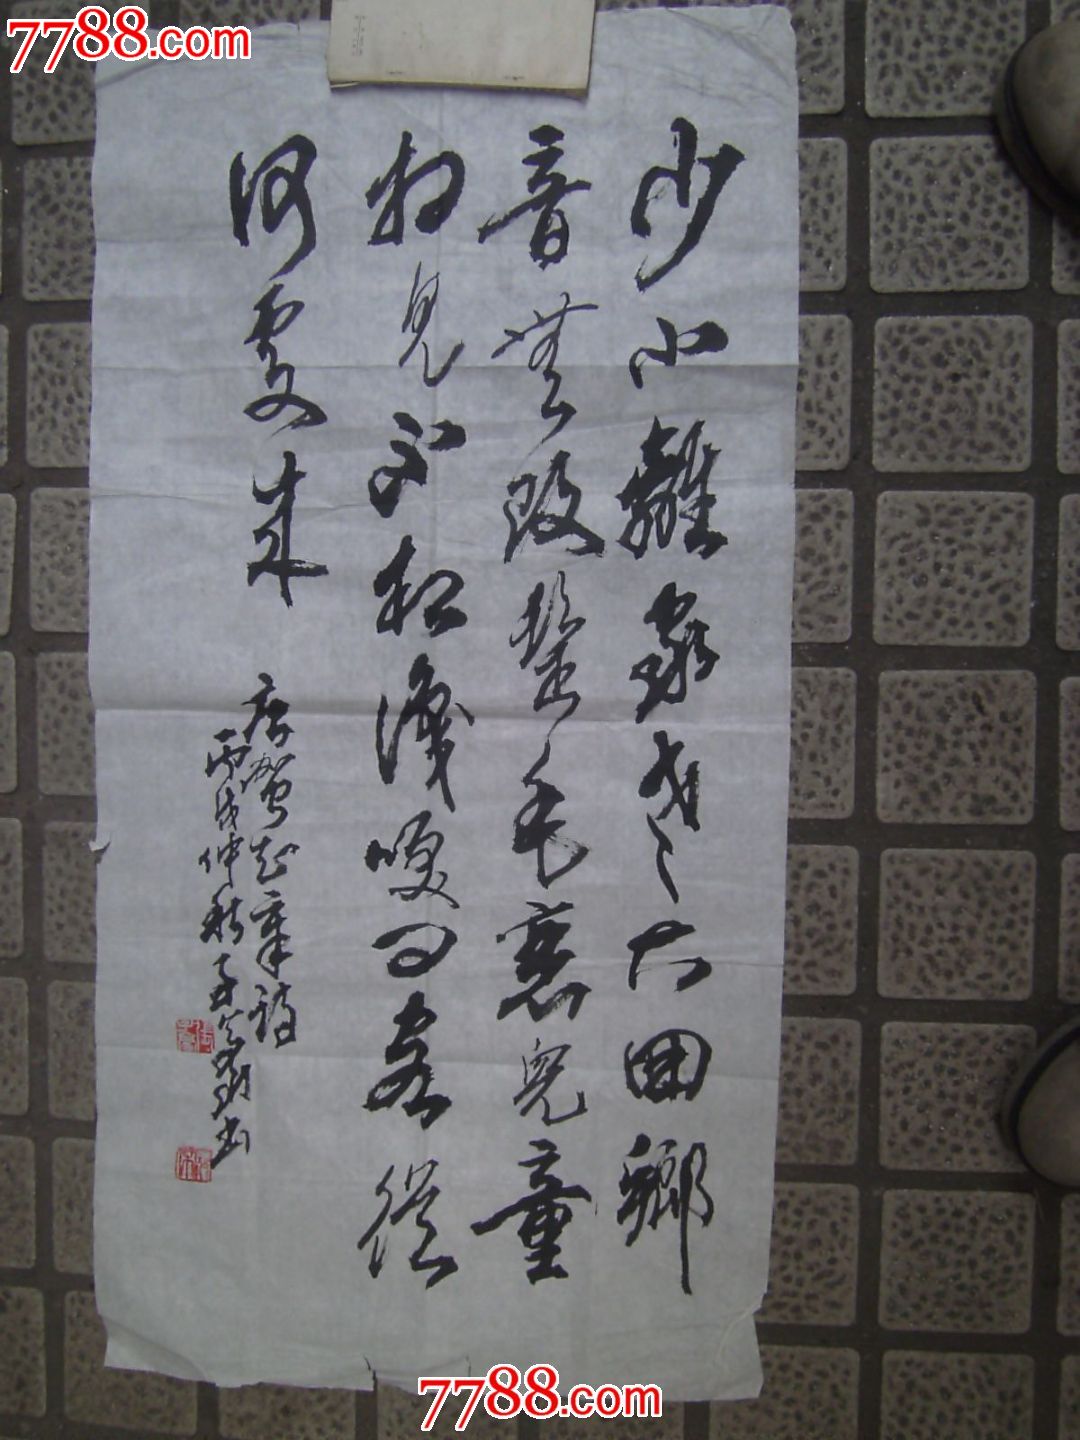 7788.com
少小離家老大回鄉
音無改鬢毛衰兒童
相見不相識咲問客從
何處來
唐賀知章詩
丙戌仲秋
書
7788.com